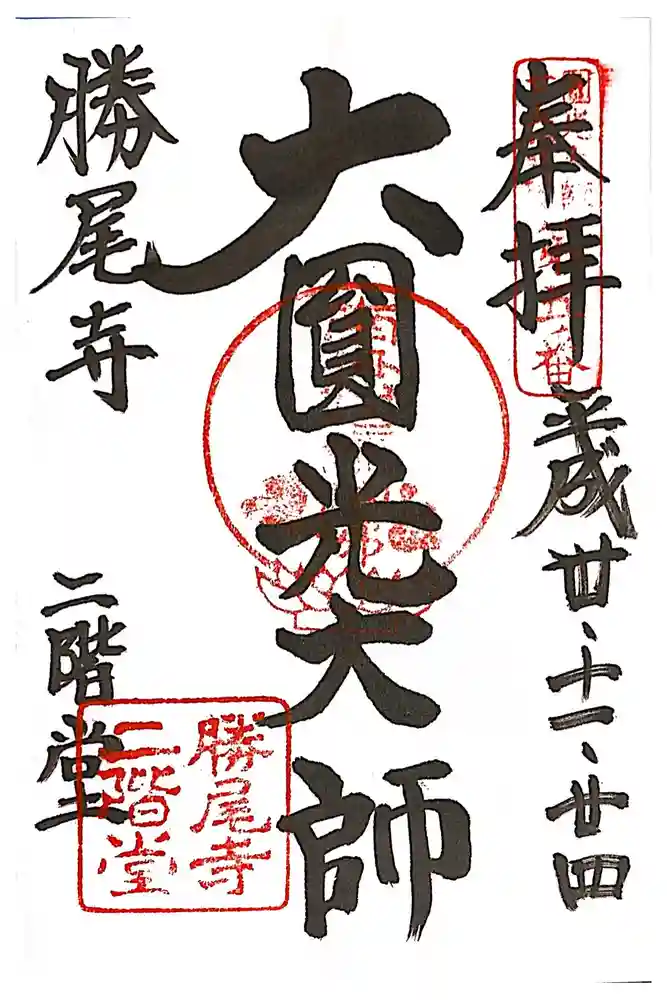 奉拝 平成丗、十一、廿四
大圓光大師
勝尾寺 二階堂
勝尾寺
二階堂